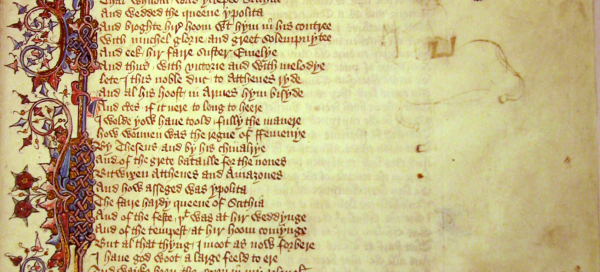 That whilom was ycleped Scithia
And wedded the queene ypolita
And broghte hir hoom wt hym in his contree
With muchel glorie and greet solempnytee
And eek hir faire suster Emelye
And thus with victorie and with melodye
Lete I this noble duc to Atthenes ryde
And al his hoost in Armes hym bisyde
And certes if it nere to long to heere
I wolde yow haue toold fully the manere
How wonnen was the regne of ffemenye
By Theseus and by his chiualrye
And of the grete bataille for the nones
Bitwixen Atthenes and Amazones
And how asseged was ypolita
The faire hardy queene of Scithia
And of the feste þt was at hir weddynge
And of the tempest at hir hoom comynge
But al that thyng I moot as now forbere
I haue god woot a large feeld to ere
And wayke been the oxen in my plough